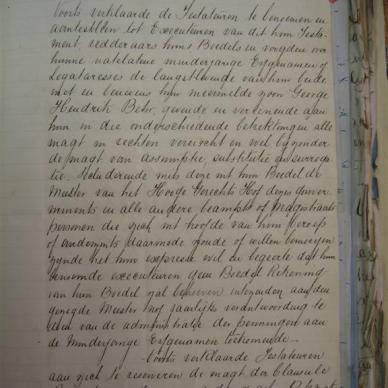 Voorts verklaarde de Testateuren te benoemen en
aantestellen tot Executeuren van dit hun Testa-
ment, redderaars huns Boedels en voogden over
hunne natelatene minderjarige Erfgenamen of
Legataresses de langstlevende van hun beide
met en benevens hun meermelde zoon George
Hendrik Behr, gevende en verleenende aan
hun in die onderscheidende betrekkingen alle
magt in rechten vereischt en wel byzonder
de magt van assumptie, substitutie en surroga-
tie. Secludeerende mits deze uit hun Boedel de
Meester van het Hooge Gerechts Hof dezes Gouver-
nements en alle andere beampts of Magistraats
personen die zich uit hoofde van hun beroep
of anderzints daarmede zoude of willen bemoeijen
zynde het hun expresse wil en begeerte dat hun
benoemde executeuren geen Boedel Rekening
van hun Boedel zal behoeven intezenden aan den
gezegde Meester nog jaarlyks verantwoording te
doen van de administratie der penningen aan
de Minderjarige Erfgenamen toekomende.
Voorts verklaarde Testateuren
aan zich te reserveren de magt der Clausule